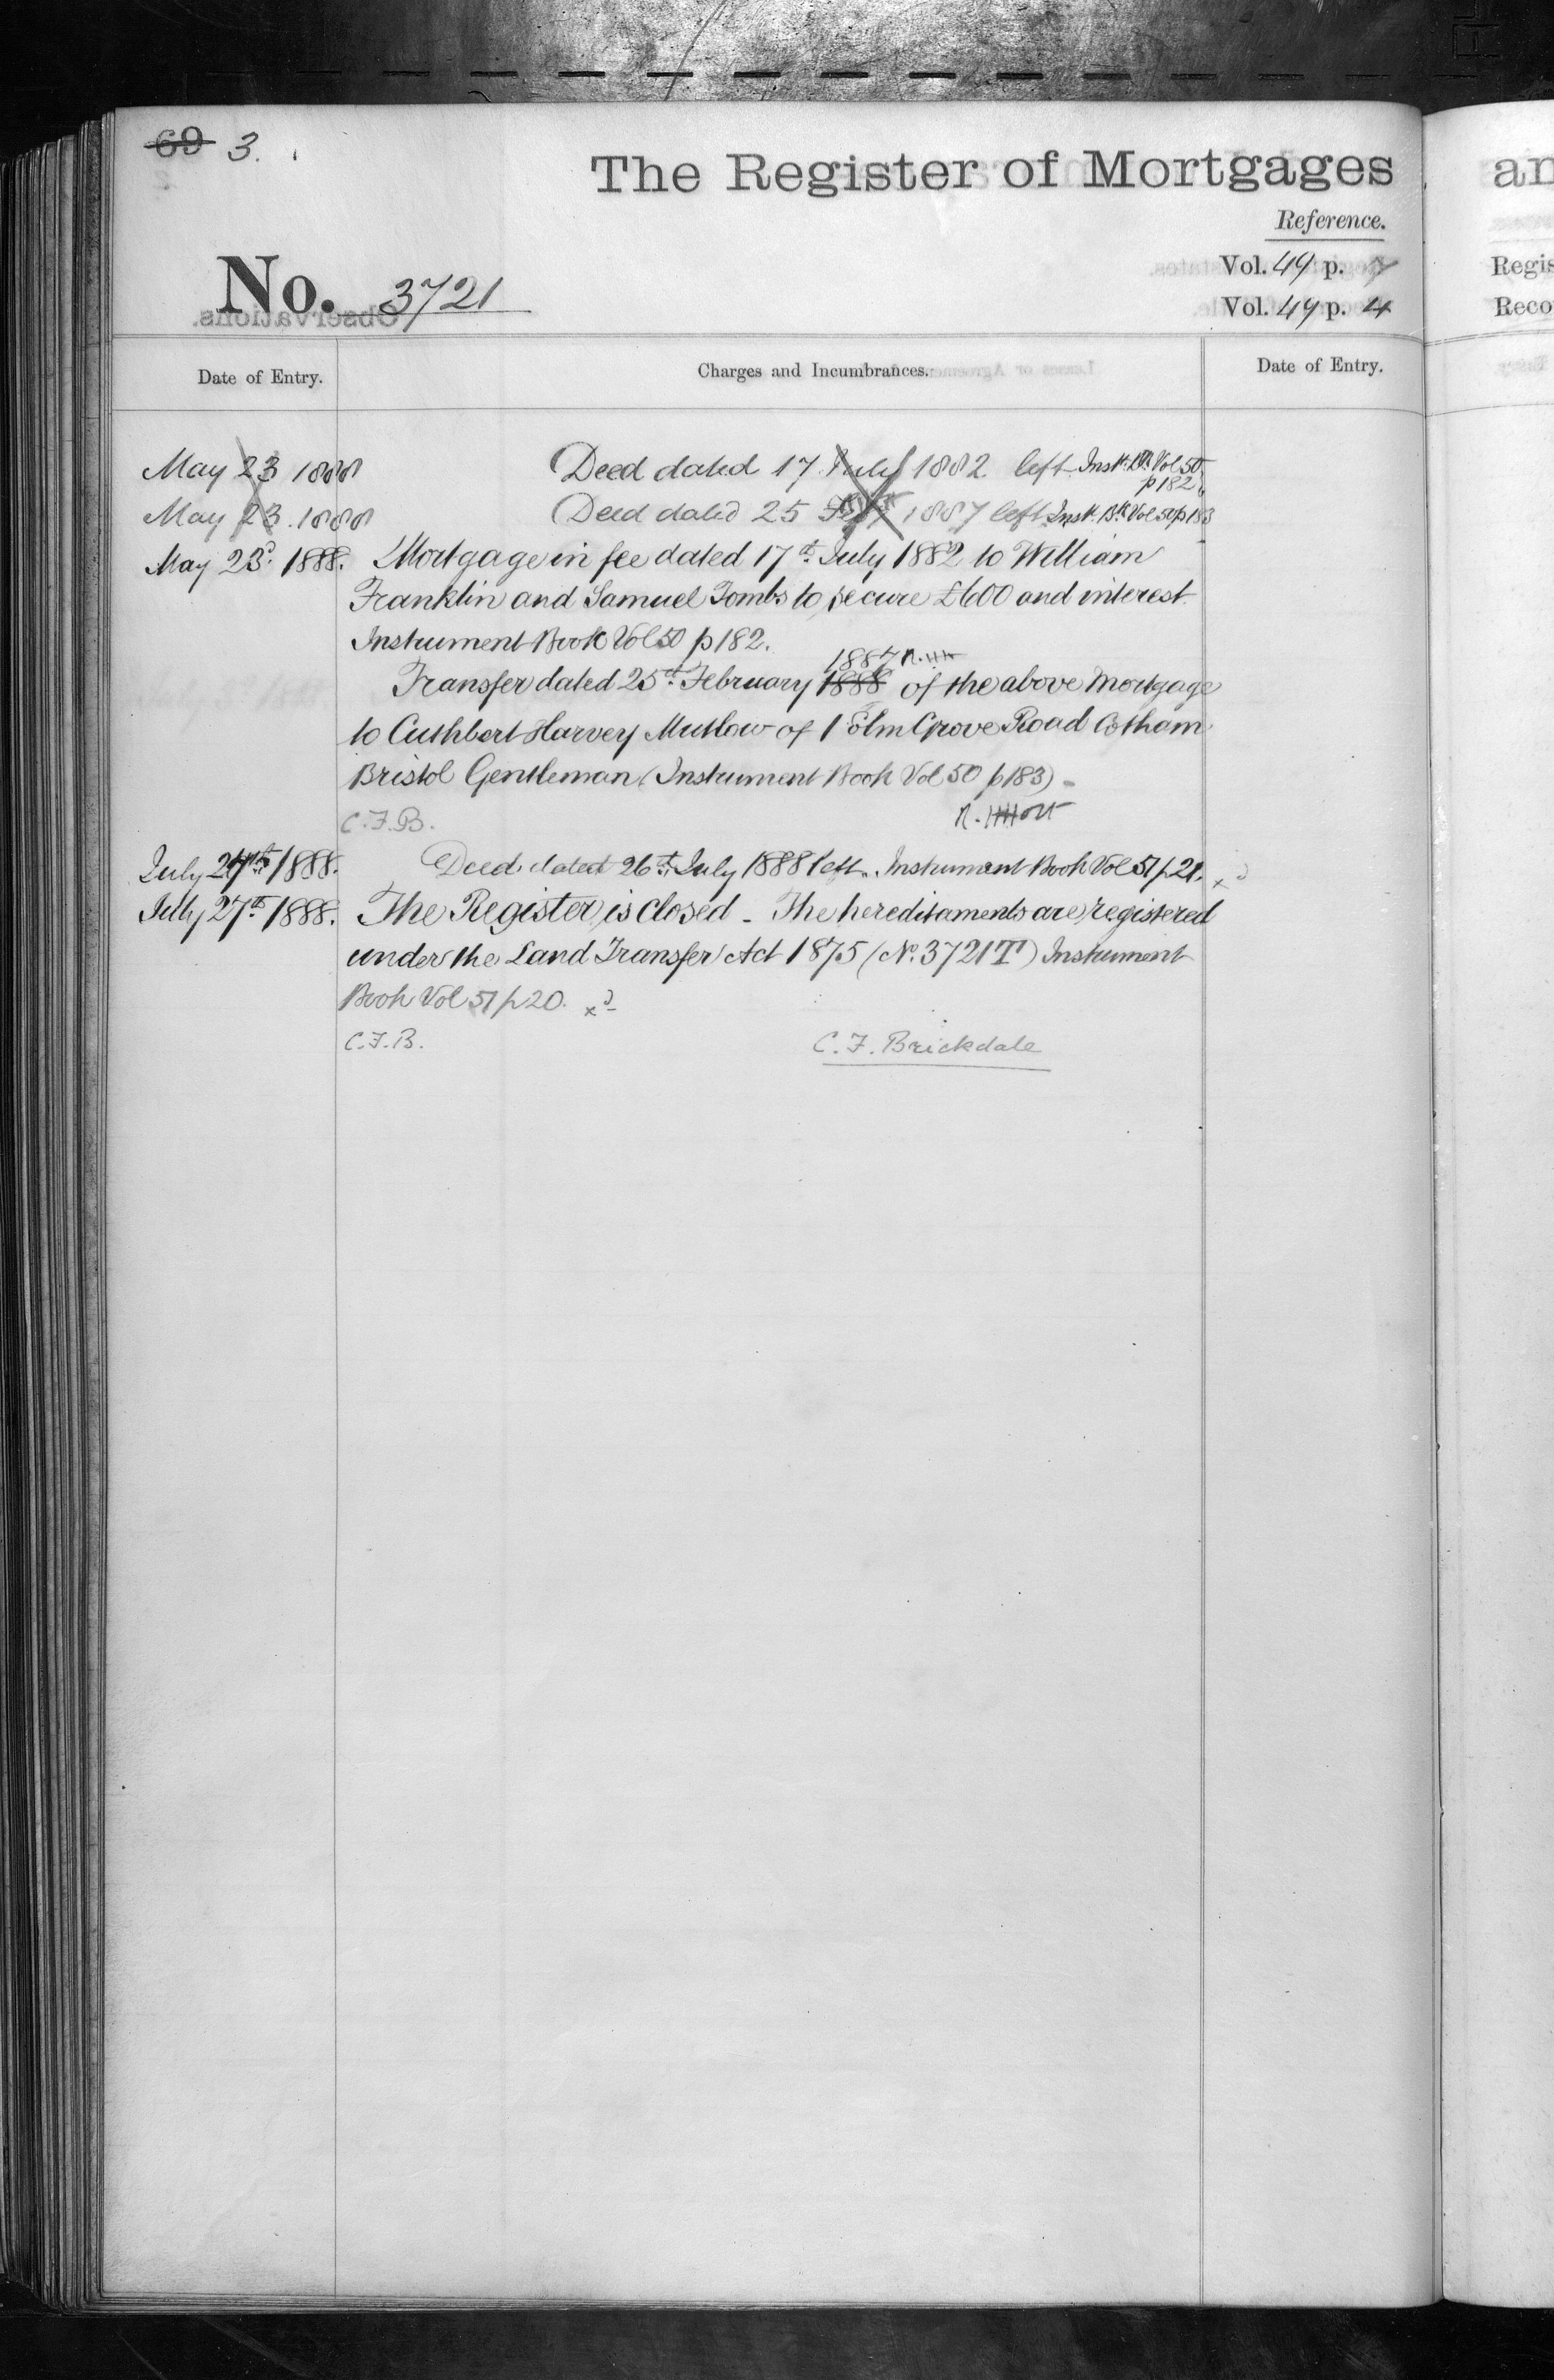 69 3.
The Register of Mortgages
Reference.
No. 3721
Vol. 49 p.
Vol. 49 p. 4
Date of Entry. Charges and Incumbrances. Date of Entry.
May 23 1888 Deed dated 17 July 1882 left Inst. Bk. Vol 50
p 182
May 23. 1888 Deed dated 25 1887 left Inst. Bk. Vol 50 p 183
May 23d. 1888. Mortgage in fee dated 17th July 1882 to William
Franklin and Samuel Tombs to secure £600 and interest.
Instrument Book Vol 50 p 182.
1887
Transfer dated 25th February 1888 of the above Mortgage
to Cuthbert Harvey Mutlow of 1 Elm Grove Road Cotham
Bristol Gentleman (Instrument Book Vol 50 p 183) -
C.F.B.
July 27th 1888. Deed dated 26th July 1888 left. Instrument Book Vol 51 p 21.
July 27th 1888. The Register is closed - The hereditaments are registered
under the Land Transfer Act 1875 (No. 3721T) Instrument
Book Vol 51 p 20.
C.F.B. C. F. Brickdale
an
Regis
Reco